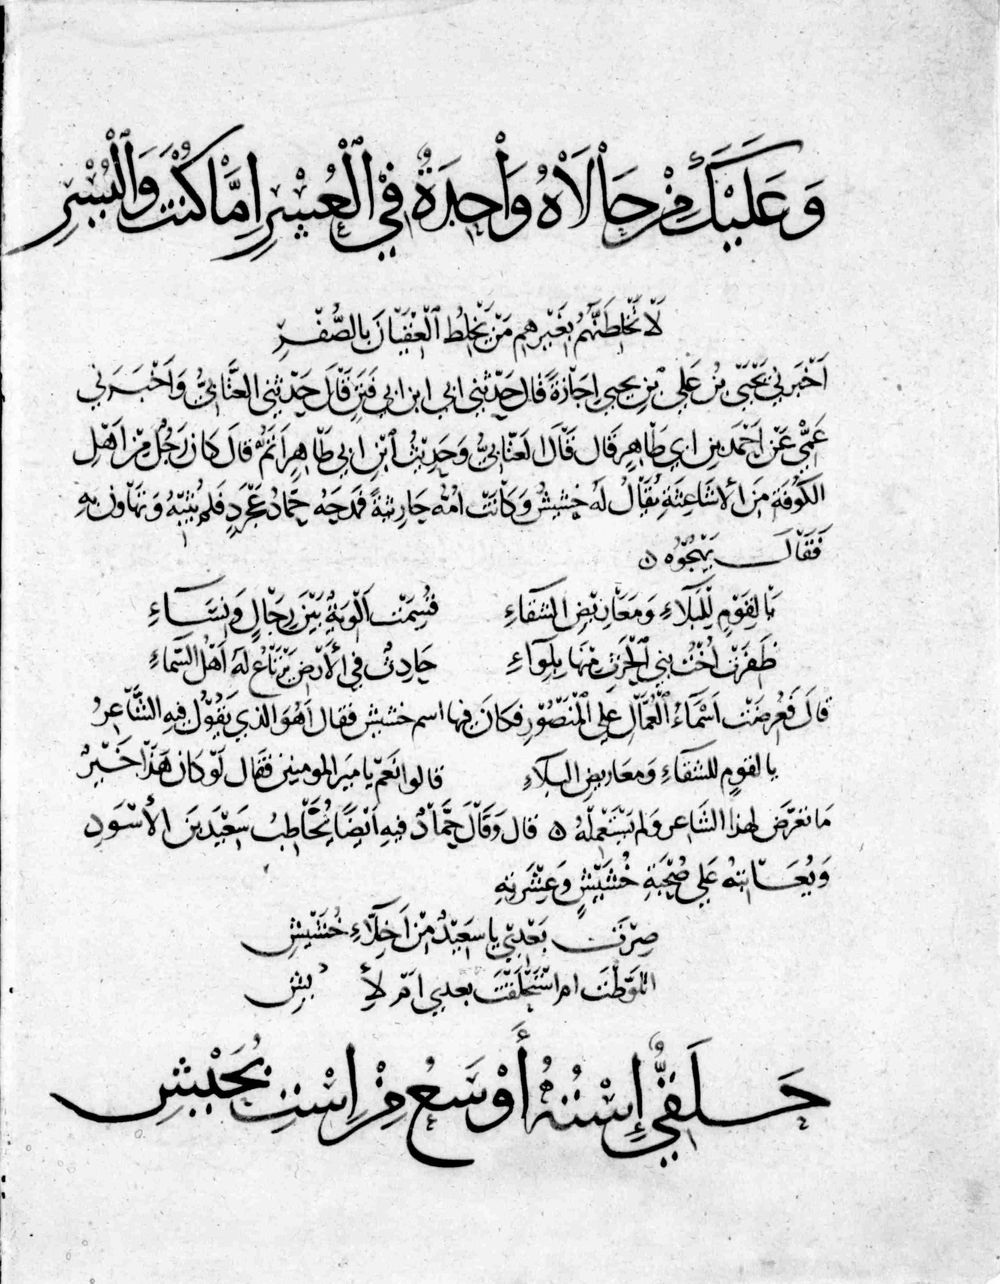 وَعَلَيْكَ مِنْ حَالَاهُ وَاحِدَةٌ فِي الْعُسْرِ اِمَّا كُنْتَ وَالْيُسْرِ
لَا تَخْلِطَنَّهُمُ بِغَيْرِهِم مَنْ يَخْلِطُ الْعِقْيَانَ بِالصُّفْرِ
اَخْبَرَني يَحْيَى بْنُ عَلِي بْنِ يحيى اجازةً قال حَدّثني ابي ابن ابي فَنَنٍ قَالَ حَدّثني العتَّابيُّ وَاَخْبَرَني
عَمِّي عَنْ اَحْمَدَ بنِ ابي طَاهِرٍ قَال قَالَ العَتّابيُّ وَحَديثُ ابْنِ ابي طَاهِرٍ اَتَمُّ قالَ كانَ رَجُلٌ مِنْ اَهْلِ
الكُوفَةِ مِنَ الاَشَاعِثَةِ يُقَالُ لَهُ خشيشٌ وَكانَتْ اُمُّهُ حَارِثيَّةً فمدَحَهُ حَمّادُ عَجْرَدٍ فلم يُثِبْهُ وَتهَاونَ بِهِ
فَقَالَ يَهْجُوه
يَا لقَوْمٍ لِلْبَلَاءِ وَمَعَارِيْضِ الشقَاءِ قُسِمَتْ اَلْوِيَةٌ بَيْنَ رِجَالٍ وَنِسَاءِ
ظَفِرَتْ اُخْتُ بَني الْحَرثِ مِنْهَا بِلِوَاءِ حَادِثٌ في الاَرْضِ يَرْتَاعُ لَهُ اَهْلُ السَّمَاءِ
قالَ فَعُرِضَتْ اَسْمَاءُ الْعُمّالِ علي الْمَنْصُوْرِ فكانَ فيها اسم خشيش فقال اَهُوَ الذي يَقُوْلُ فيهِ الشَّاعِرُ
يا لقومٍ للشقَاءِ وَمعَاريضِ البلاءِ قالوا نَعَمْ يا ميرَ المومنين فَقَال لَوْ كانَ هَذَا خَيْرٌ
مَا تعَرَّضَ لهذا الشاعر وَلم نسْتَعْمِلْهُ قال وَقَالَ حَمَّادٌ فيهِ اَيْضًا يُخَاطِبُ سَعِيْدَ بْنَ الاَسْوَدِ
وَيُعَاتِبُهُ عَلي صُحْبَةِ خُشَيْشٍ وَعِشْرَتِهِ
صِرْتَ بَعْدِيْ يا سَعِيْدُ مِنْ اَخِلَّاءِ خُشَيْش
اتلَوَّطْتَ ام اسْتُخْلِفْتَ بعدي اَمْ لِأَيْشِ
حَلَقِيٌّ إِسْتُهُ أَوْسَعُ مِنْ اِسْتِ بُحَيْشِ